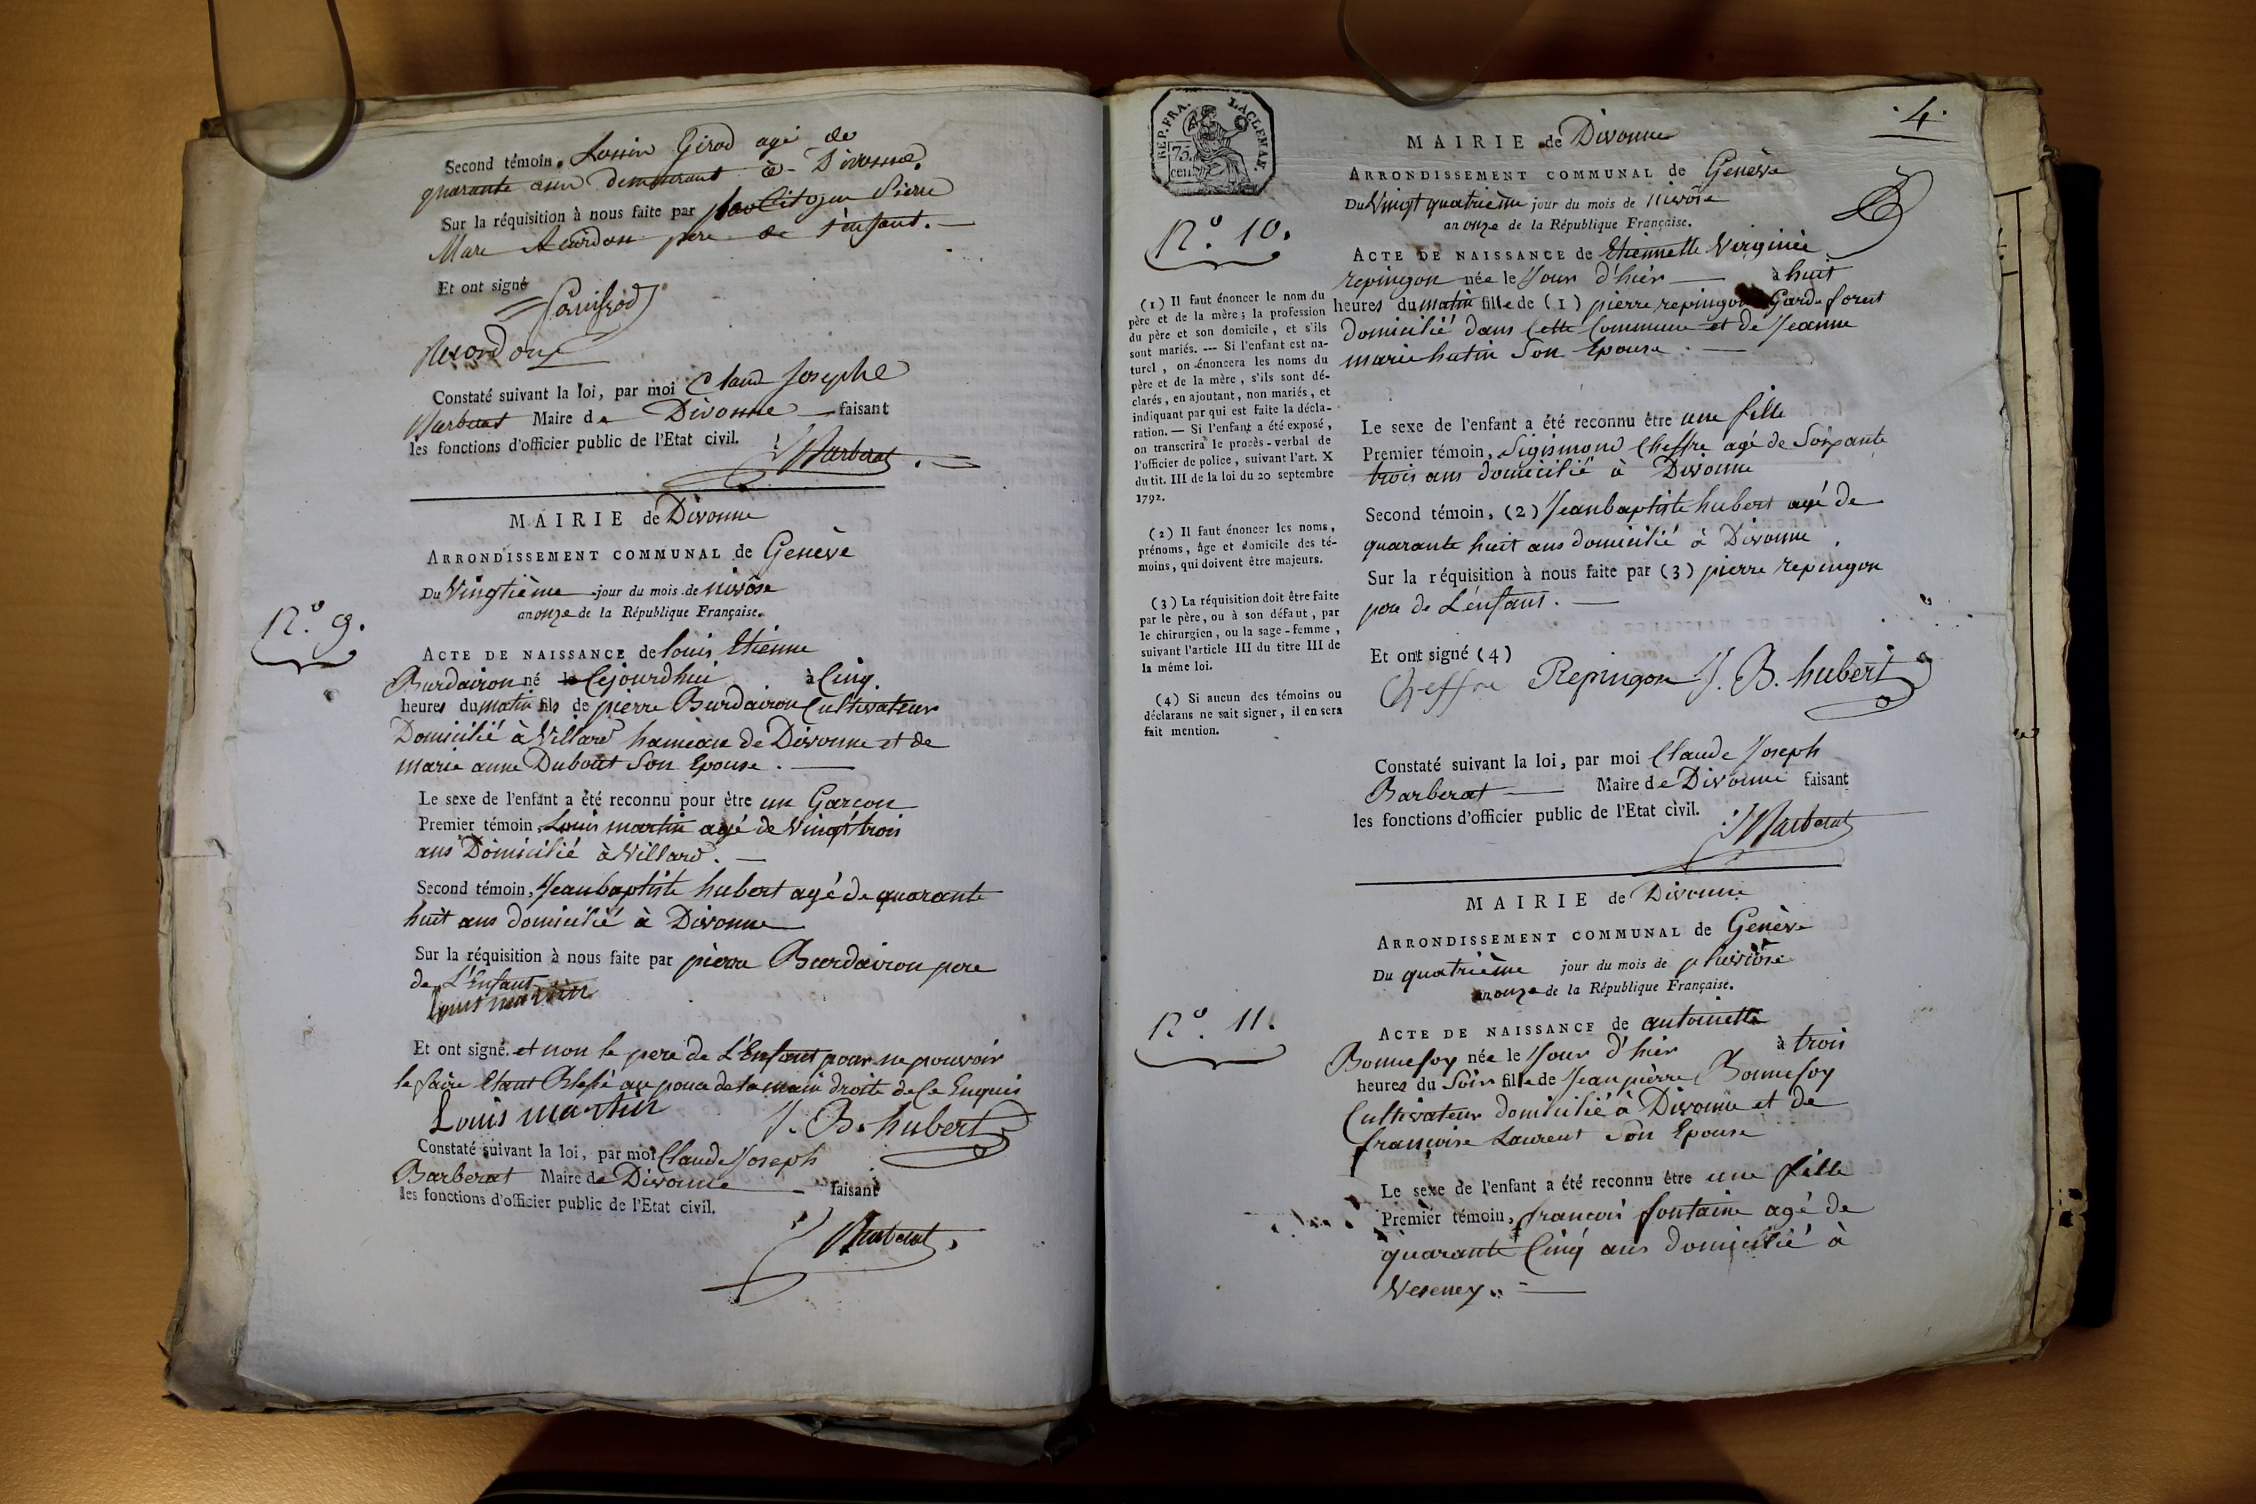 Second témoin. Girod agé de
quarante ans demeurant à Divonne.
Sur la réquisition à nous faite par le Citoyen Pierre
Marc père de l'enfant.
Et ont signé
Constaté suivant la loi, par moi Claud Josephe
Barberat Maire de Divonne faisant
les fonctions d'officier public de l'Etat civil.
Barberat
MAIRIE de Divonne
ARRONDISSEMENT COMMUNAL de Genève
Du Vingtième jour du mois de nivôse
an onze de la République Française.
N.o 9.
ACTE DE NAISSANCE de louis Etienne
Burdairon né Cejourdhui à Cinq
heures du matin fils de pierre Burdairon Cultivateur
Domicilié à Villard hameau de Divonne et de
marie anne Dubout Son Epouse.
Le sexe de l'enfant a été reconnu pour être un Garcon
Premier témoin, Louis martin agé de Vingt trois
ans Domicilié à Villard.
Second témoin, Jeanbaptiste hubert agé de quarante
huit ans domicilié à Divonne
Sur la réquisition à nous faite par pierre Burdairon pere
de L'Enfant
Louis martin
Et ont signé. et non le pere de L'Enfant pour ne pouvoir
le faire Etant Blessé au pouce de la main droite de Ce Enquis
Louis martin J. B. hubert
Constaté suivant la loi, par moi Claude Joseph
Barberat Maire de Divonne faisant
les fonctions d'officier public de l'Etat civil.
Barberat
REP. FRA. 75. cent.
4.
MAIRIE de Divonne
ARRONDISSEMENT COMMUNAL de Genève
Du Vingt quatrième jour du mois de nivôse
an onze de la République Française.
N.o 10.
ACTE DE NAISSANCE de Etiennette Virginie
repingon née le Jour d'hier à huit
heures du matin fille de (1) pierre repingon Garde forest
Domicilié dans Cette Commune et de Jeanne
marie hutin Son Epouse.
(1) Il faut énoncer le nom du
père et de la mère; la profession
du père et son domicile, et s'ils
sont mariés. — Si l'enfant est na-
turel, on énoncera les noms du
père et de la mère, s'ils sont dé-
clarés, en ajoutant, non mariés, et
indiquant par qui est faite la décla-
ration. — Si l'enfant a été exposé,
on transcrira le procès-verbal de
l'officier de police, suivant l'art. X
du tit. III de la loi du 20 septembre
1792.
(2) Il faut énoncer les noms,
prénoms, âge et domicile des té-
moins, qui doivent être majeurs.
(3) La réquisition doit être faite
par le père, ou à son défaut, par
le chirurgien, ou la sage-femme,
suivant l'article III du titre III de
la même loi.
(4) Si aucun des témoins ou
déclarans ne sait signer, il en sera
fait mention.
Le sexe de l'enfant a été reconnu être une fille
Premier témoin, Sigismond Cheffre agé de Soixante
trois ans domicilié à Divonne
Second témoin, (2) Jeanbaptiste hubert agé de
quarante huit ans domicilié à Divonne.
Sur la réquisition à nous faite par (3) pierre repingon
pere de L'enfant.
Et ont signé (4)
Cheffre Repingon J. B. hubert
Constaté suivant la loi, par moi Claude Joseph
Barberat Maire de Divonne faisant
les fonctions d'officier public de l'Etat civil.
Barberat
MAIRIE de Divonne
ARRONDISSEMENT COMMUNAL de Genève
Du quatrième jour du mois de pluviôse
an onze de la République Française.
N.o 11.
ACTE DE NAISSANCE de antoinette
Bonnefoy née le Jour d'hier à trois
heures du Soir fille de Jean pierre Bonnefoy
Cultivateur domicilié à Divonne et de
françoise Laurent Son Epouse
Le sexe de l'enfant a été reconnu être une fille
Premier témoin, francois fontaine agé de
quarante Cinq ans domicilié à
Veseney.